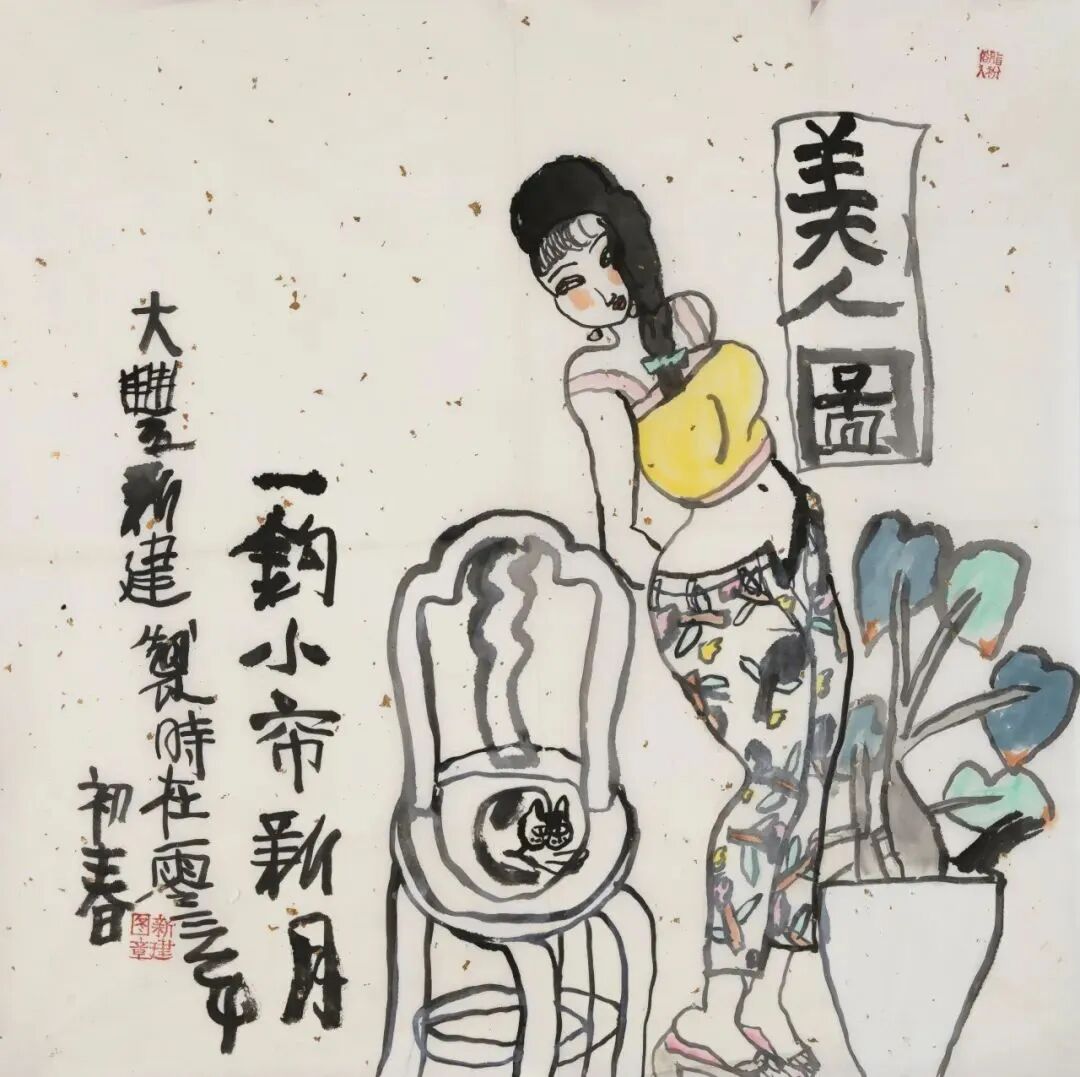 美人圖
一鈎小帘新月
大豐新建製時在零三年
初春
新建图章